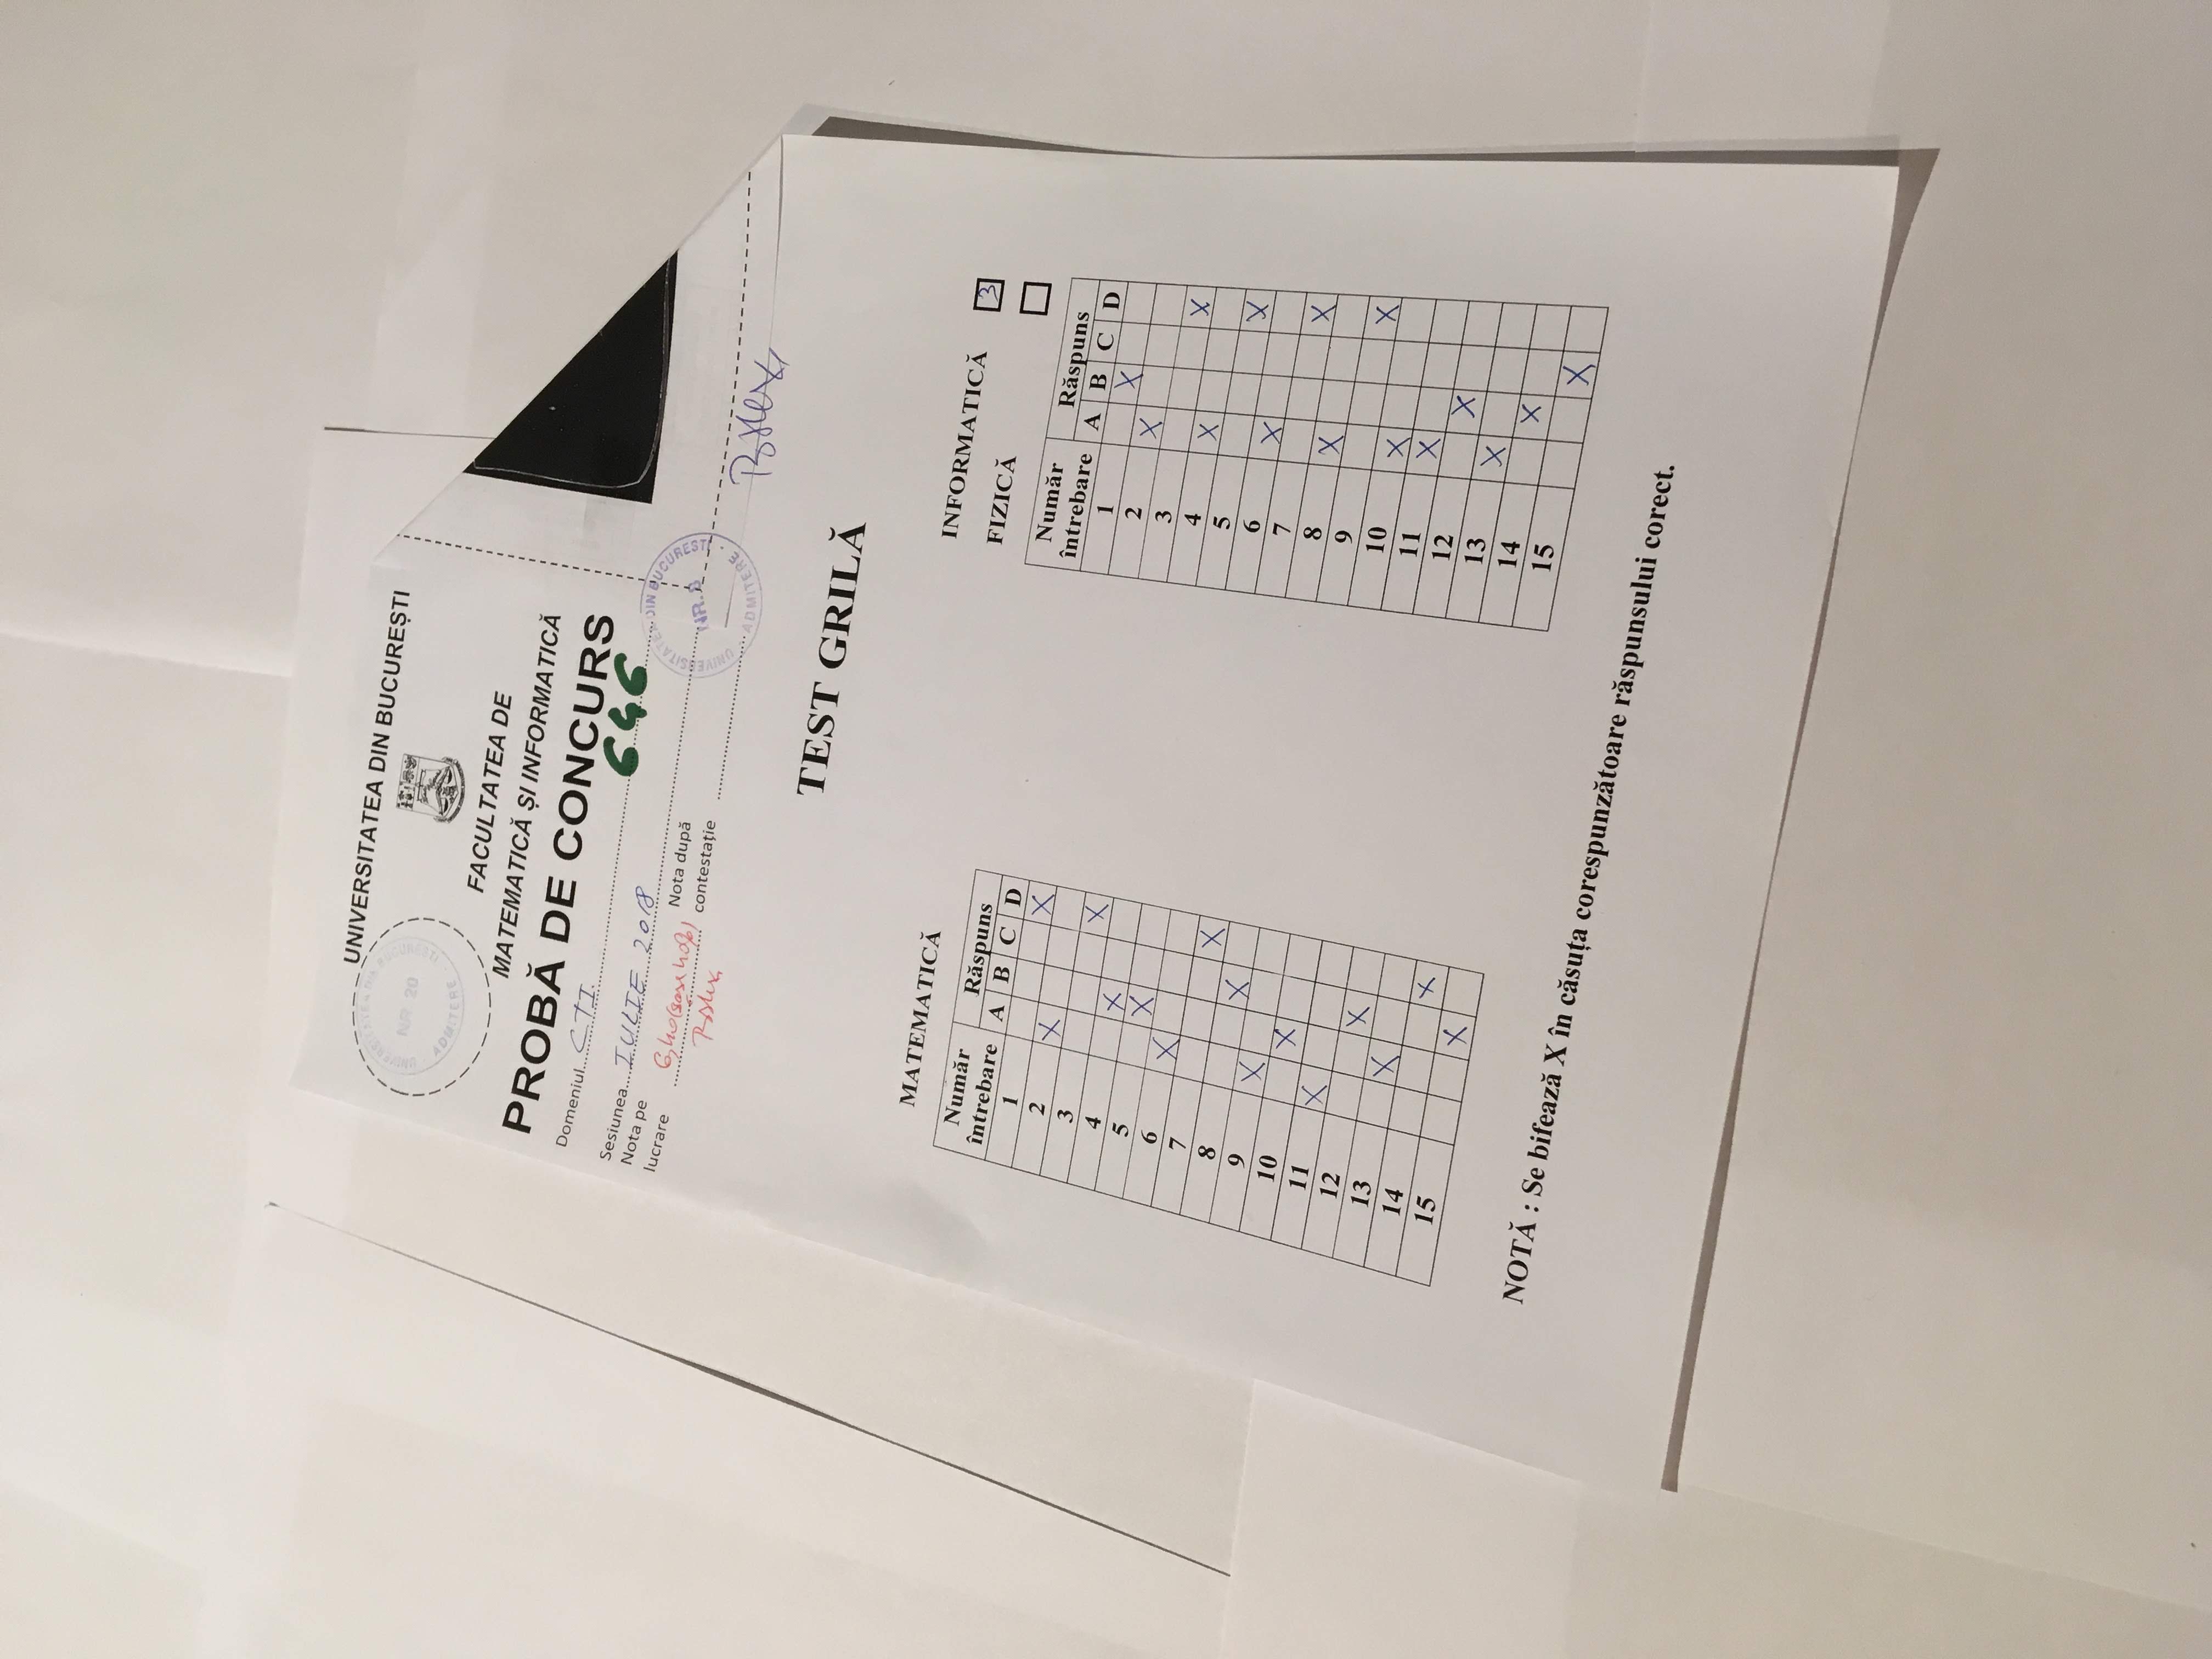 UNIVERSITATEA DIN BUCUREȘTI
UNIVERSITATEA DIN BUCURESTI
NR 20
ADMITERE
FACULTATEA DE
MATEMATICĂ ȘI INFORMATICĂ
PROBĂ DE CONCURS
Domeniul CTI.
646
Sesiunea IULIE 2018
Nota pe
lucrare 6,40 (șase 40%)
Nota după
contestație
UNIVERSITATEA DIN BUCURESTI
NR.
ADMITERE
TEST GRILĂ
MATEMATICĂ
Număr
întrebare
Răspuns
A B C D
1 X
2 X
3 X
4 X
5 X
6 X
7 X
8 X
9 X
10 X
11 X
12 X
13 X
14 X
15 X
INFORMATICĂ 3
FIZICĂ
Număr
întrebare
Răspuns
A B C D
1 X
2 X
3 X
4 X
5 X
6 X
7 X
8 X
9 X
10 X
11 X
12 X
13 X
14 X
15 X
NOTĂ : Se bifează X în căsuța corespunzătoare răspunsului corect.